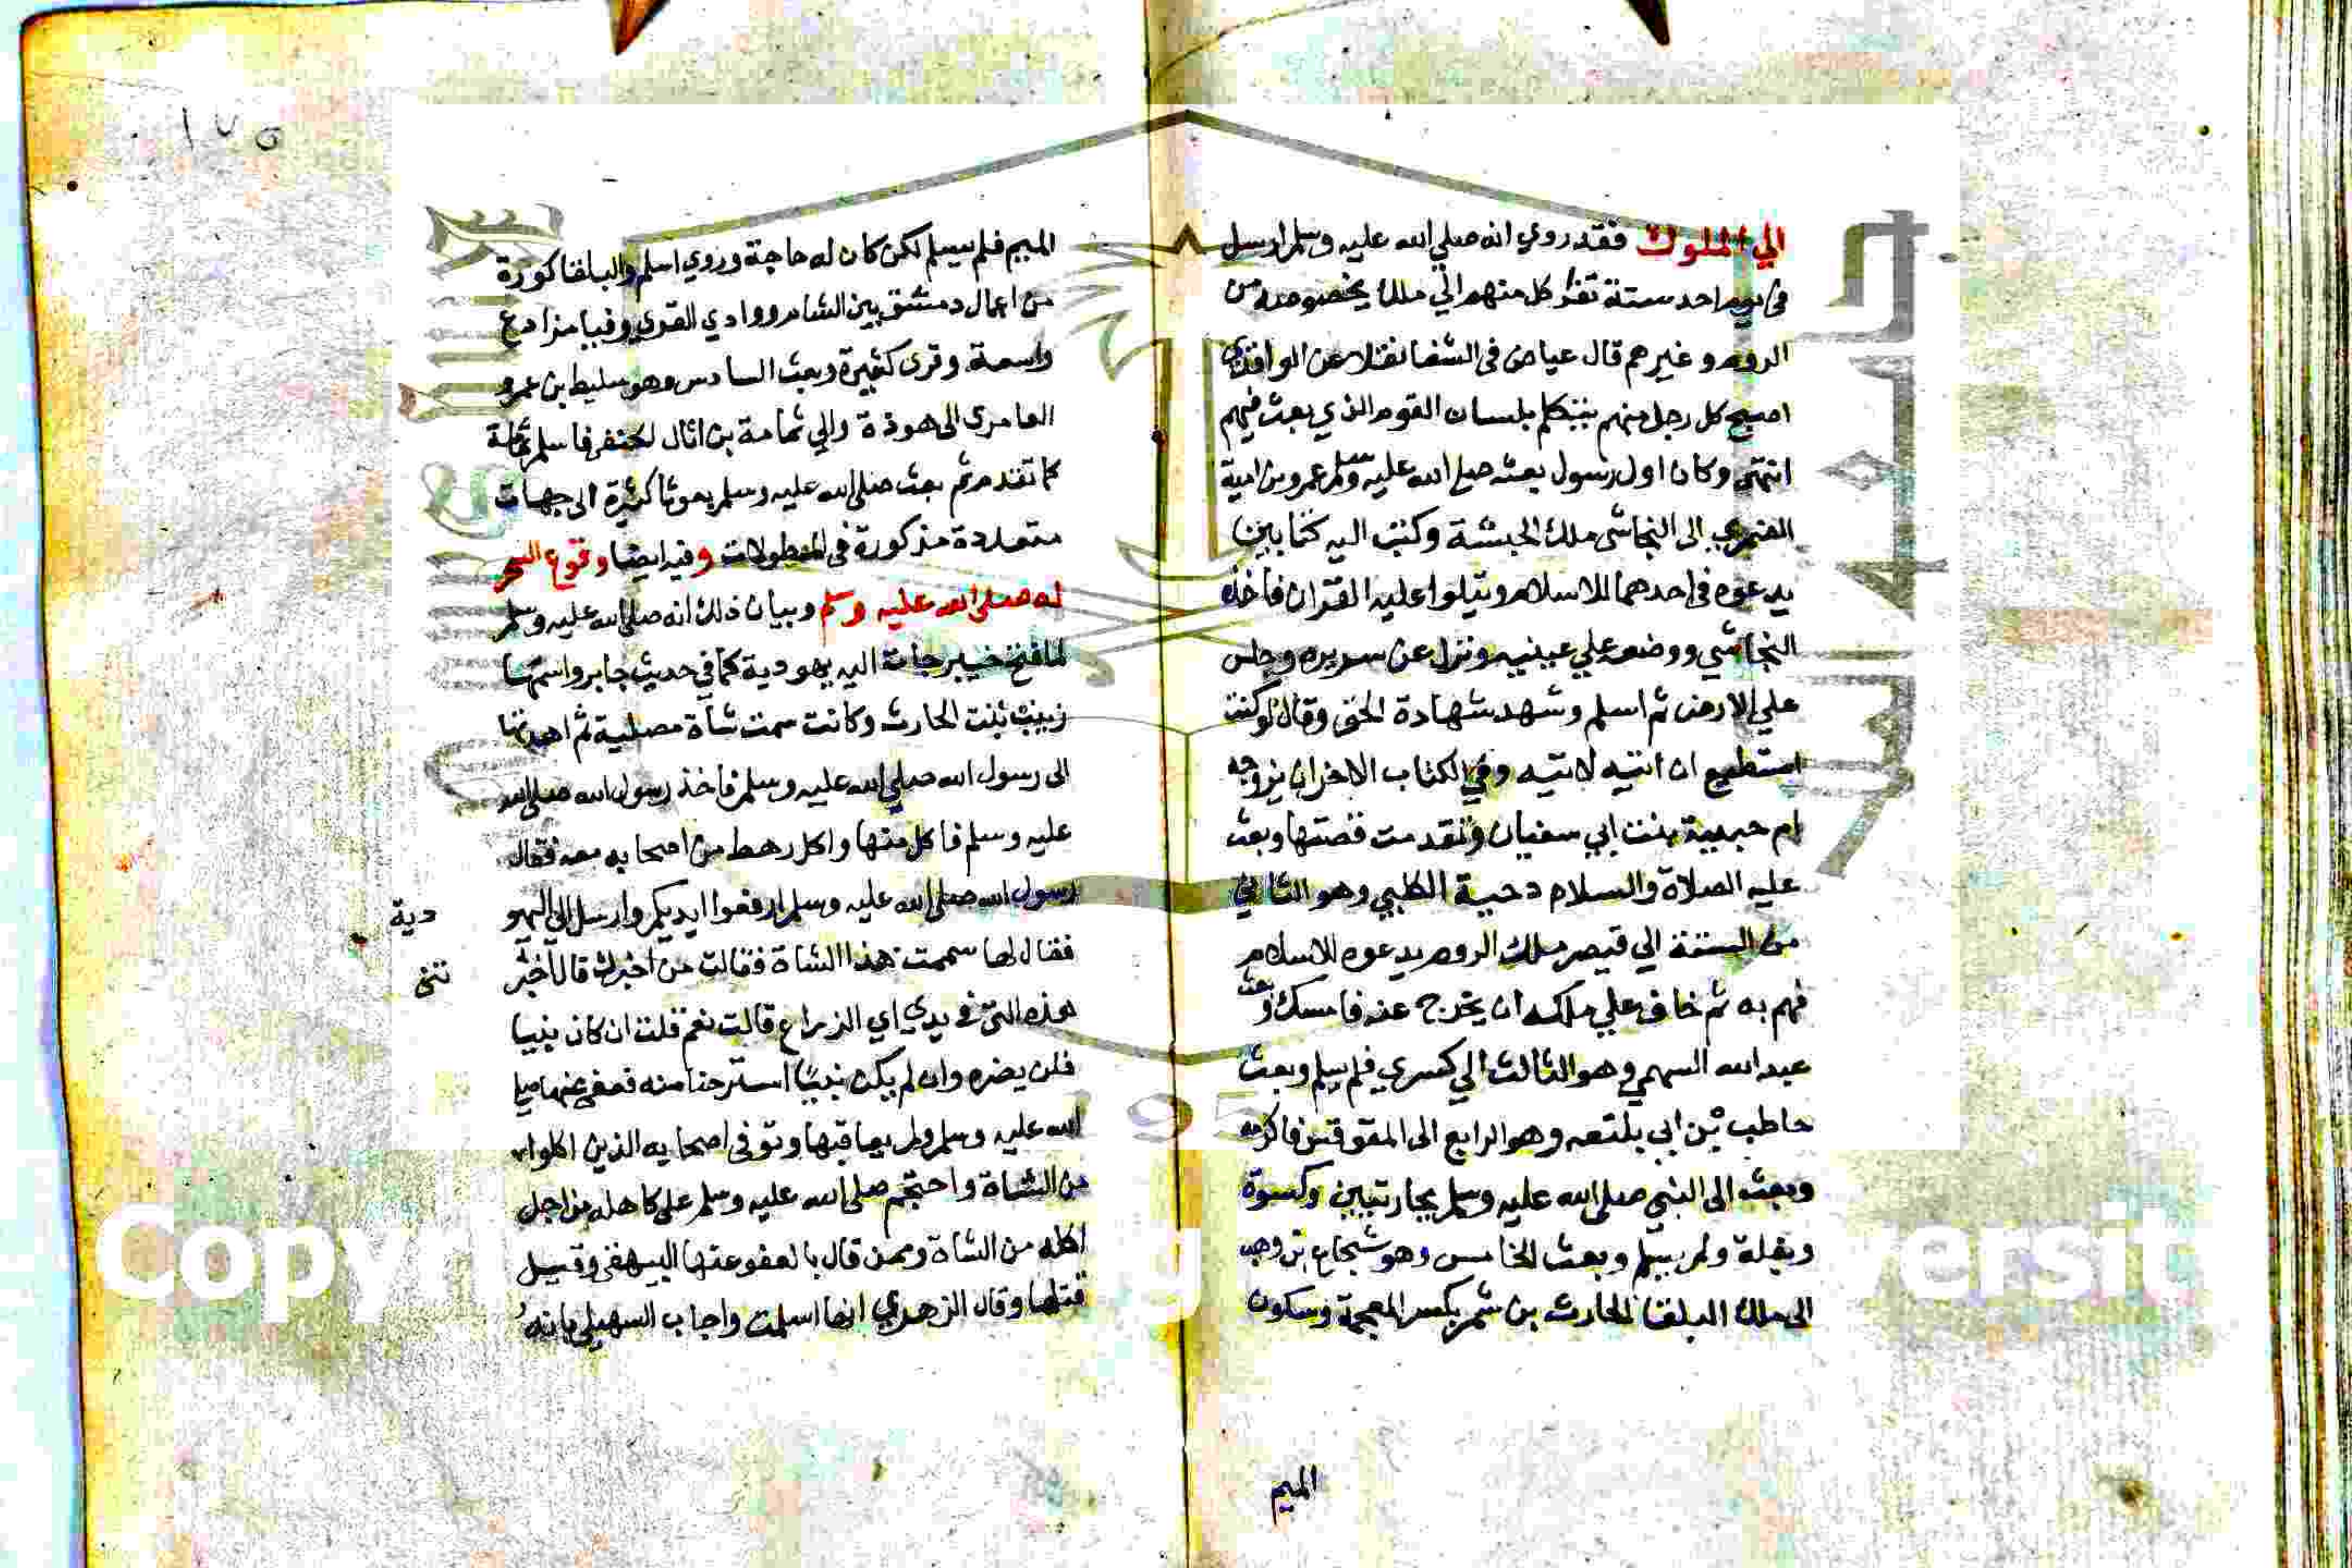 الي الملوك فقد روي انه صلي الله عليه وسلم ارسل
في يوم احد ستة نفر كل منهم الي ملك يخصوصه من
الروم وغيرهم قال عياض في الشفا نقلا عن الواقدي
اصبح كل رجل منهم يتكلم بلسان القوم الذي بعث فيهم
انتهي وكان اول رسول بعثه صلي الله عليه وسلم عمرو بن امية
الضمري الى النجاشي ملك الحبشة وكتب اليه كتابين
يدعوه في احدهما للاسلام ويتلوا عليه القران فاخذه
النجاشي ووضعه علي عينيه ونزل عن سريره وجلس
علي الارض ثم اسلم وشهد شهادة الحق وقال لو كنت
استطيع ان اتيه لاتيته وفي الكتاب الاخر ان يزوجه
ام حبيبة بنت ابي سفيان وتقدمت قصتها وبعث
عليه الصلاة والسلام دحية الكلبي وهو الثاني
من الستة الي قيصر ملك الروم يدعوه للاسلام
فهم به ثم خاف علي ملكه ان يخرج عنه فامسك وبعث
عبد الله السهمي وهو الثالث الي كسري فلم يسلم وبعث
حاطب بن ابي بلتعه وهو الرابع الى المقوقس فاكرمه
وبعث الى النبي صلى الله عليه وسلم بجاريتين وكسوة
وبغلة ولم يسلم وبعث الخامس وهو شجاع بن وهب
الى ملك البلقا الحارث بن شمر بكسر المعجمة وسكون
الميم
١٧٥
الميم فلم يسلم لكن كان له حاجة وروي اسلم والبلقا كورة
من اعمال دمشق بين الشام ووادي القري وفيها مزادع
واسعة وقرى كثيرة وبعث السادس وهو سليط بن عمرو
العامرى الى هوذة والي ثمامة بن اثال لحنفر فاسلم ثمامة
كما تقدم ثم بعث صلى الله عليه وسلم بعوثا كثيرة الى جهات
متعددة مذكورة في المطولات وفيه ايضا وقوع السحر
له صلى الله عليه وسلم وبيان ذلك انه صلى الله عليه وسلم
لما فتح خيبر جات اليه يهودية كما في حديث جابر واسمها
زينب بنت الحارث وكانت سمت شاة مصلية ثم اهدتها
الى رسول الله صلي الله عليه وسلم فاخذ رسول الله صلى الله
عليه وسلم فاكل منها واكل رهط من اصحابه معه فقال
رسول الله صلي الله عليه وسلم ارفعوا ايديكم وارسل الي اليهو دية
فقال لها سممت هذا الشاة فقالت من اخبرك قال اخبر تنى
هذه التي في يدي اي الذراع قالت نعم قلت ان كان نبيا
فلن يضره وان لم يكن نبيا استرحنا منه فعفي عنها صلي
الله عليه وسلم ولم يعاقبها وتوفى اصحابه الذين اكلوا
من الشاة واحتجم صلى الله عليه وسلم على كاهله من اجل
اكله من الشاة وممن قال بالعفو عنها البيهقى وقيل
قتلها وقال الزهري انها اسلمت واجاب السهيلي بانه